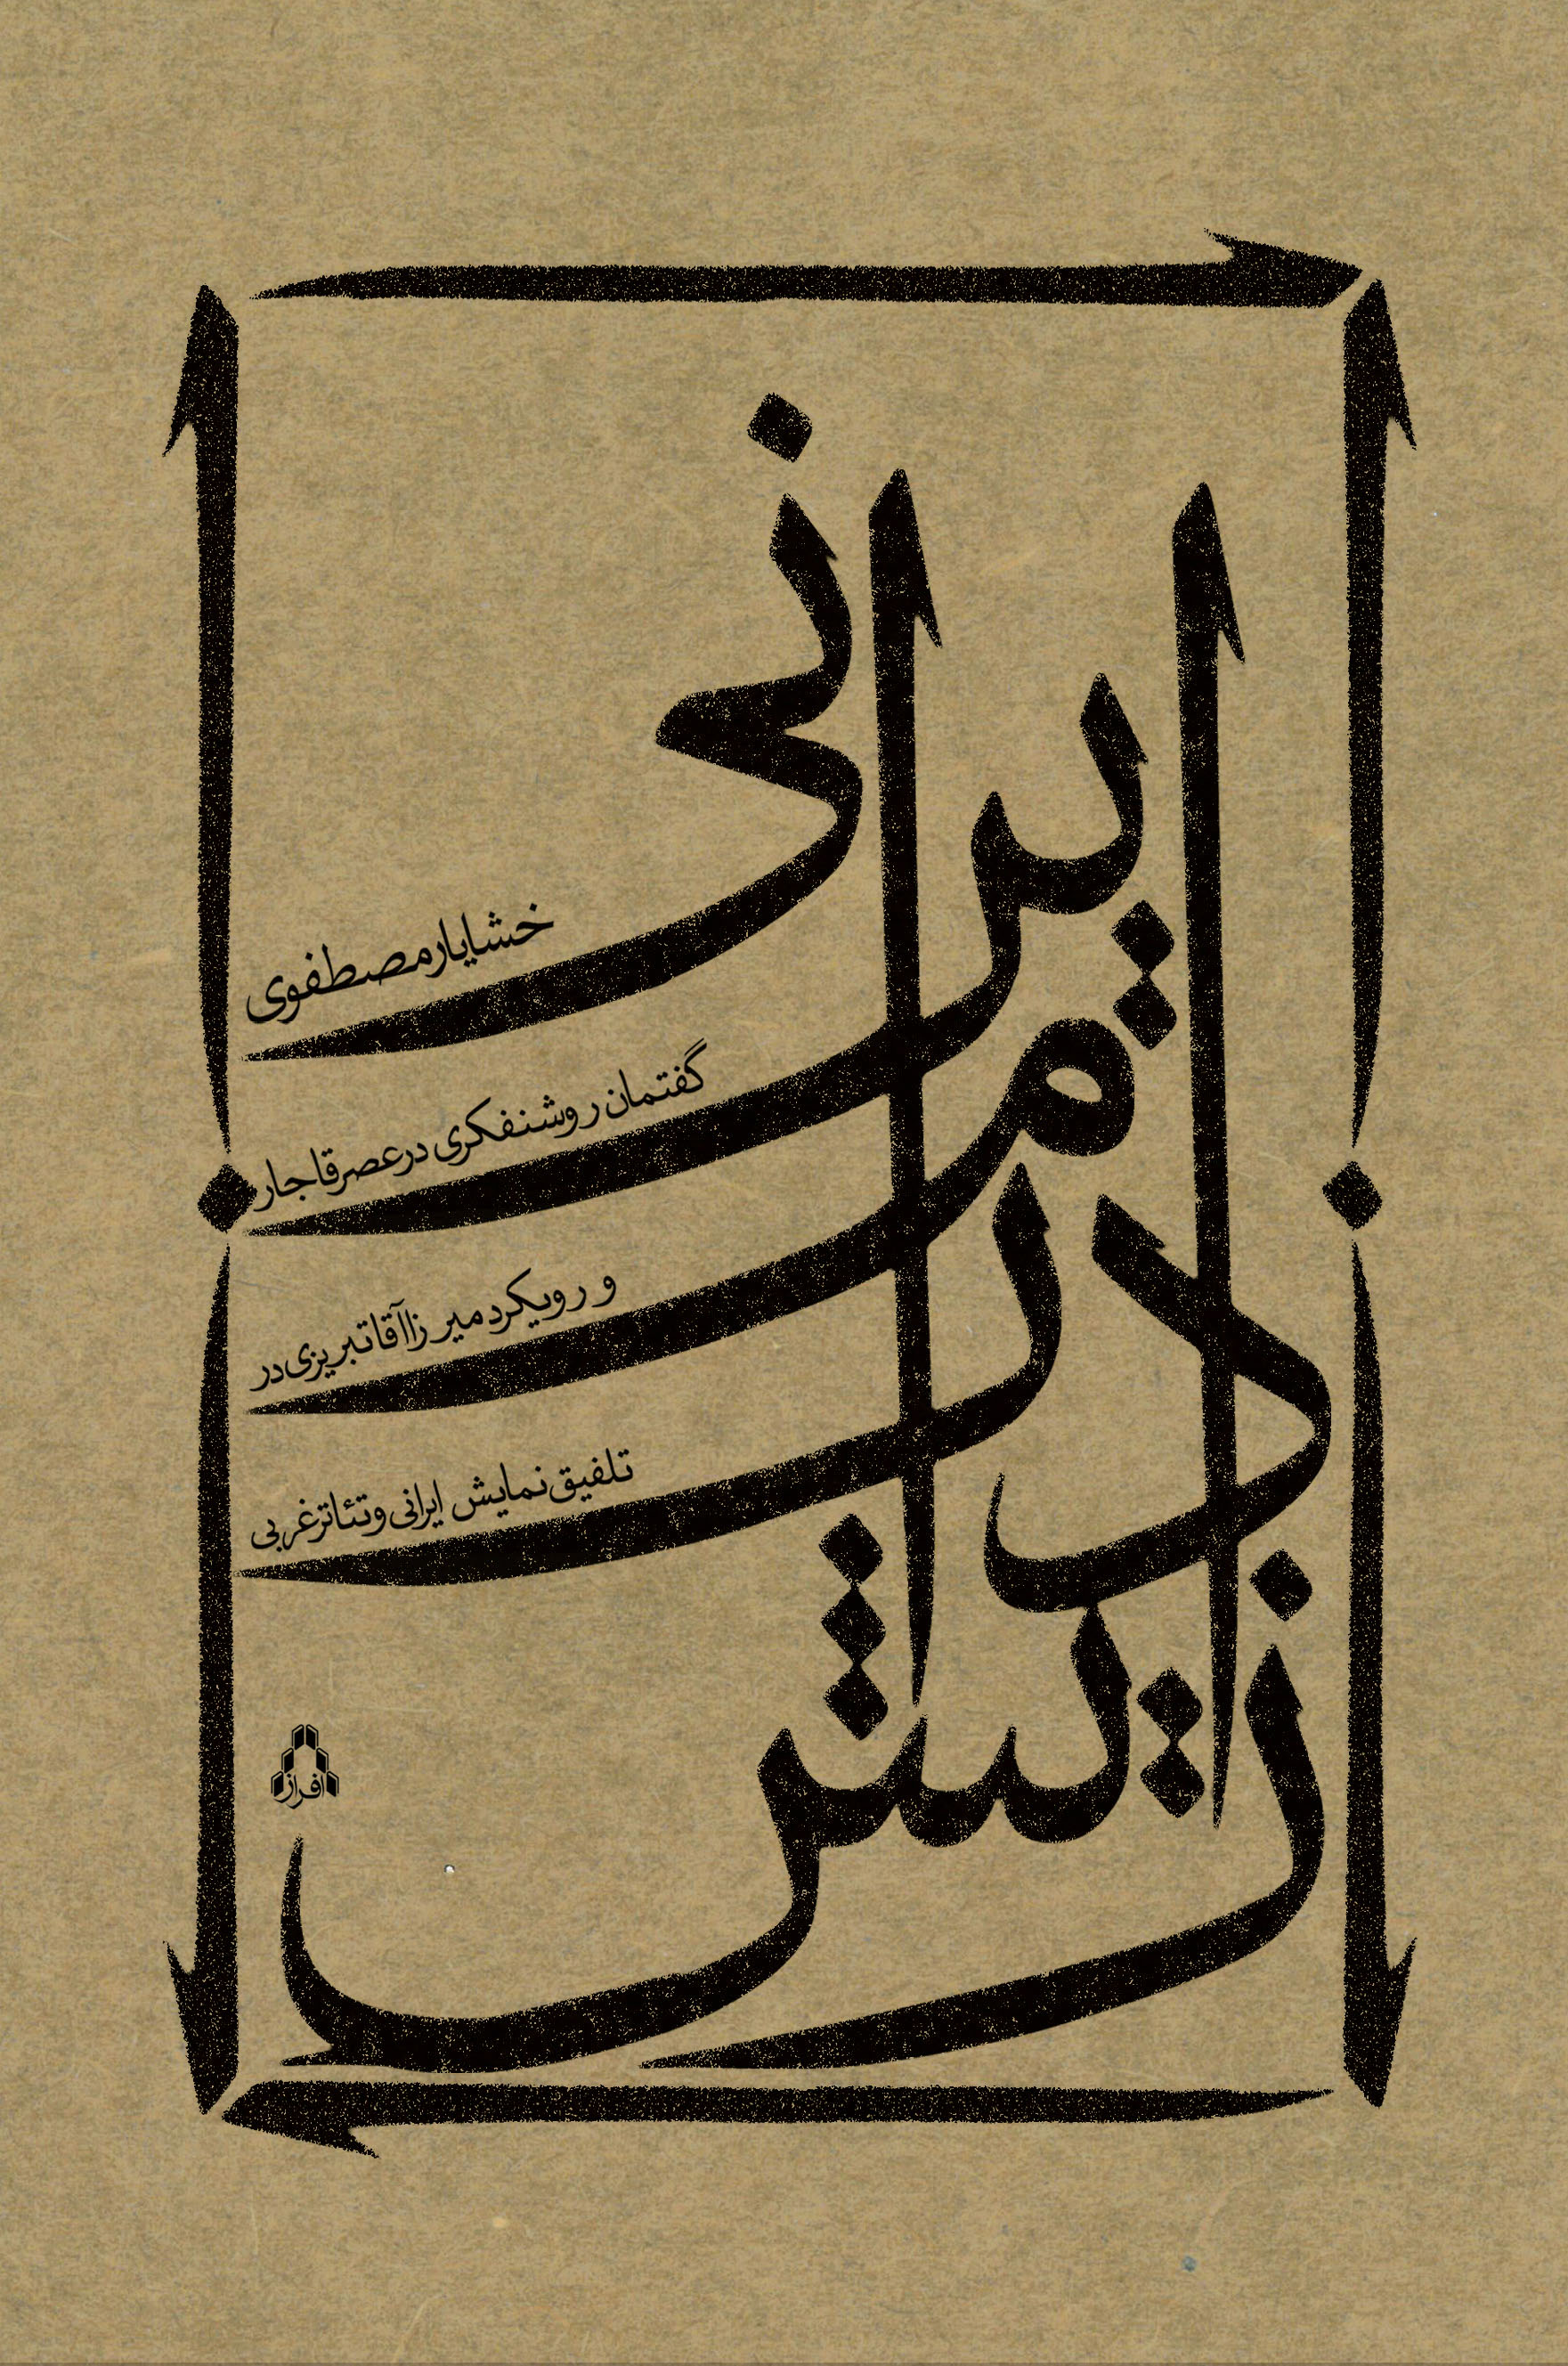 زایش درام ایرانی
خشایار مصطفوی
گفتمان روشنفکری در عصر قاجار
و رویکرد میرزا آقا تبریزی در
تلفیق نمایش ایرانی و تئاتر غربی
افراز